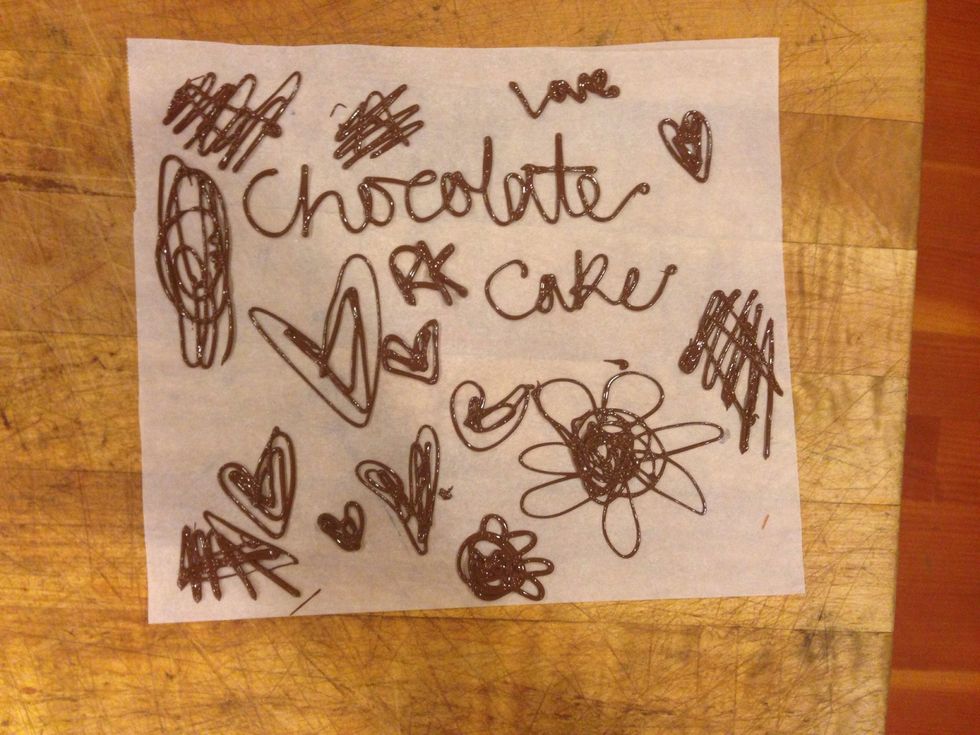 Love
Chocolate
RK Cake